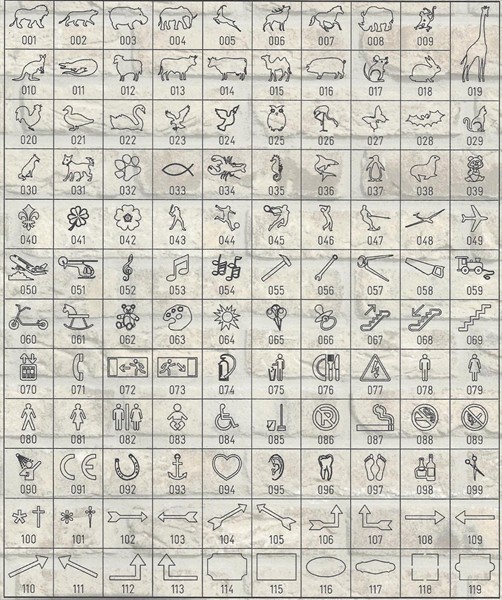 001 002 003 004 005 006 007 008 009
010 011 012 013 014 015 016 017 018 019
020 021 022 023 024 025 026 027 028 029
030 031 032 033 034 035 036 037 038 039
040 041 042 043 044 045 046 047 048 049
050 051 052 053 054 055 056 057 058 059
060 061 062 063 064 065 066 067 068 069
070 071 072 073 074 075 076 077 078 079
080 081 082 083 084 085 086 087 088 089
090 091 092 093 094 095 096 097 098 099
100 101 102 103 104 105 106 107 108 109
110 111 112 113 114 115 116 117 118 119